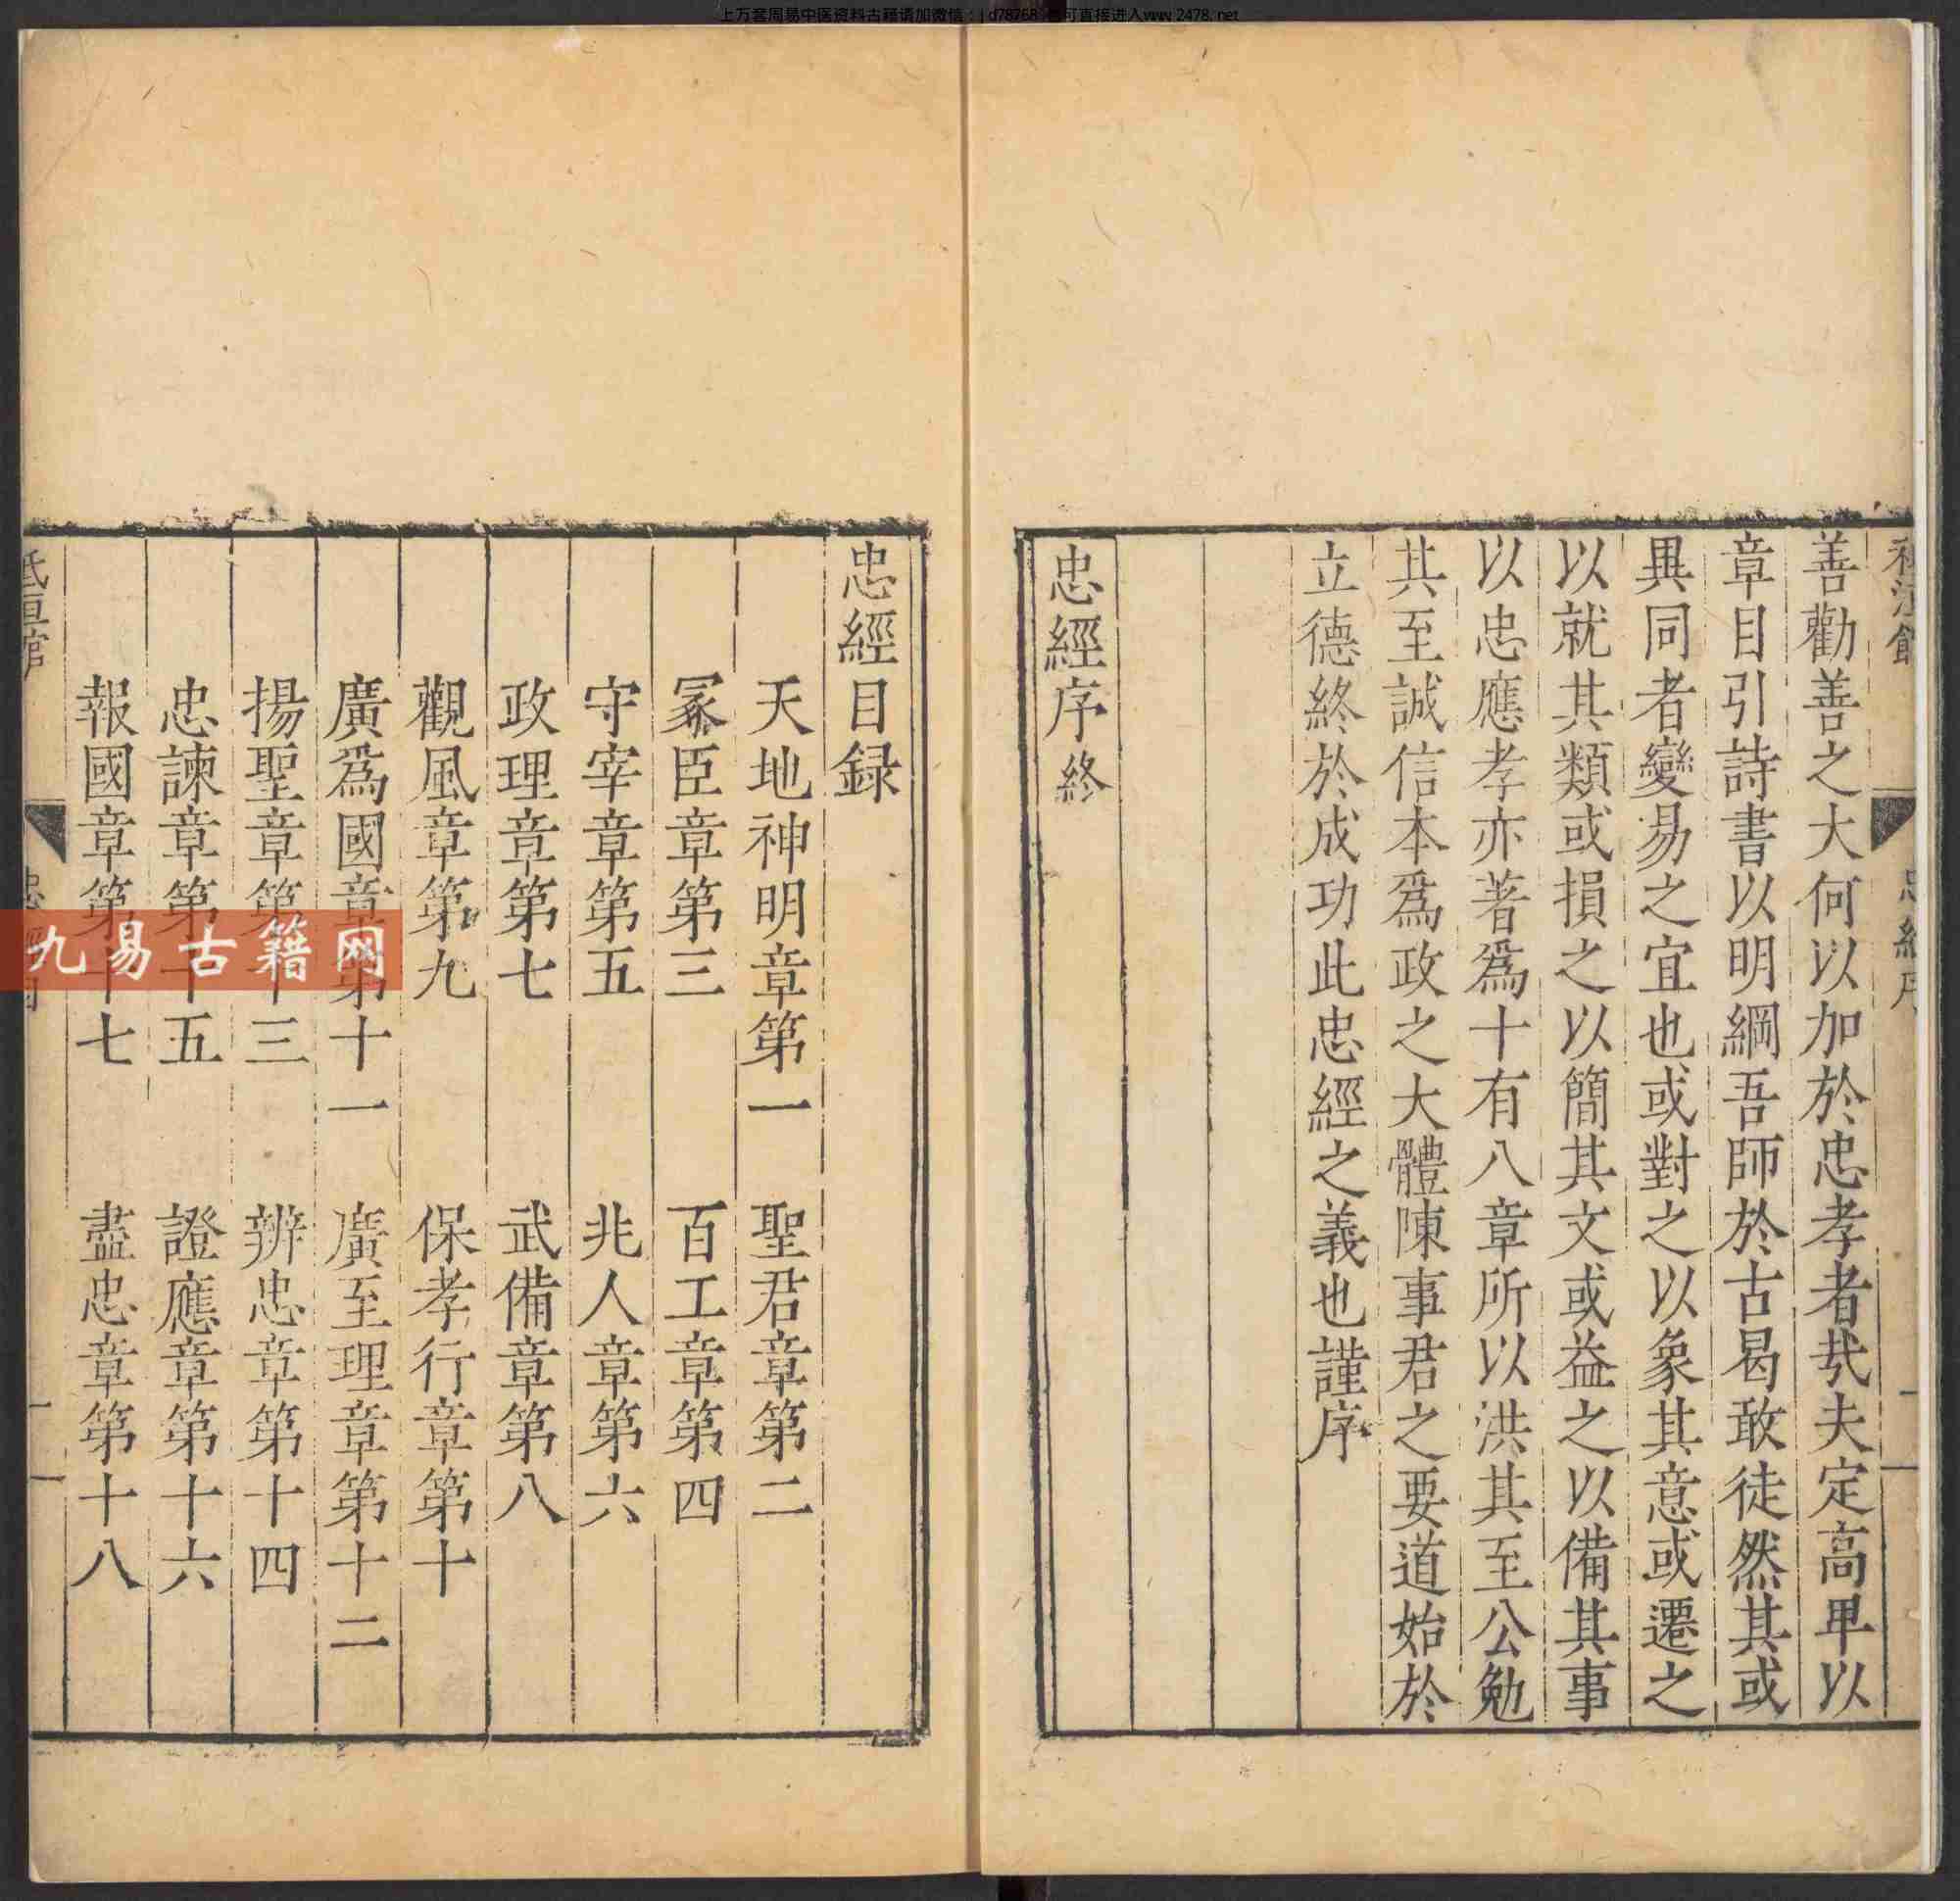 上万套周易中医资料古籍请加微信:jd78768 也可直接进入www.2478.net
善勸善之大何以加於忠孝者㢤夫定高畢以
章目引詩書以明綱吾師於古曷敢徒然其或
異同者變易之宜也或對之以象其意或遷之
以就其類或損之以簡其文或益之以備其事
以忠應孝亦著爲十有八章所以洪其至公勉
其至誠信本爲政之大體陳事君之要道始於
立德終於成功此忠經之義也謹序
忠經序終
忠經目録
天地神明章第一 聖君章第二
冢臣章第三 百工章第四
守宰章第五 兆人章第六
政理章第七 武備章第八
觀風章第九 保孝行章第十
廣爲國章第十一 廣至理章第十二
揚聖章第十三 辨忠章第十四
忠諫章第十五 證應章第十六
報國章第十七 盡忠章第十八
九易古籍网